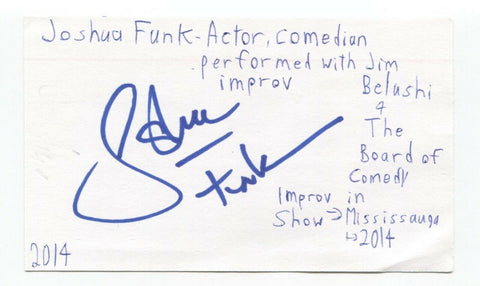 Joshua Funk-Actor, comedian
performed with Jim
improv Belushi
&
The
Board of
Comedy
Improv in
Show → Mississauga
↳ 2014
Josh
Funk
2014